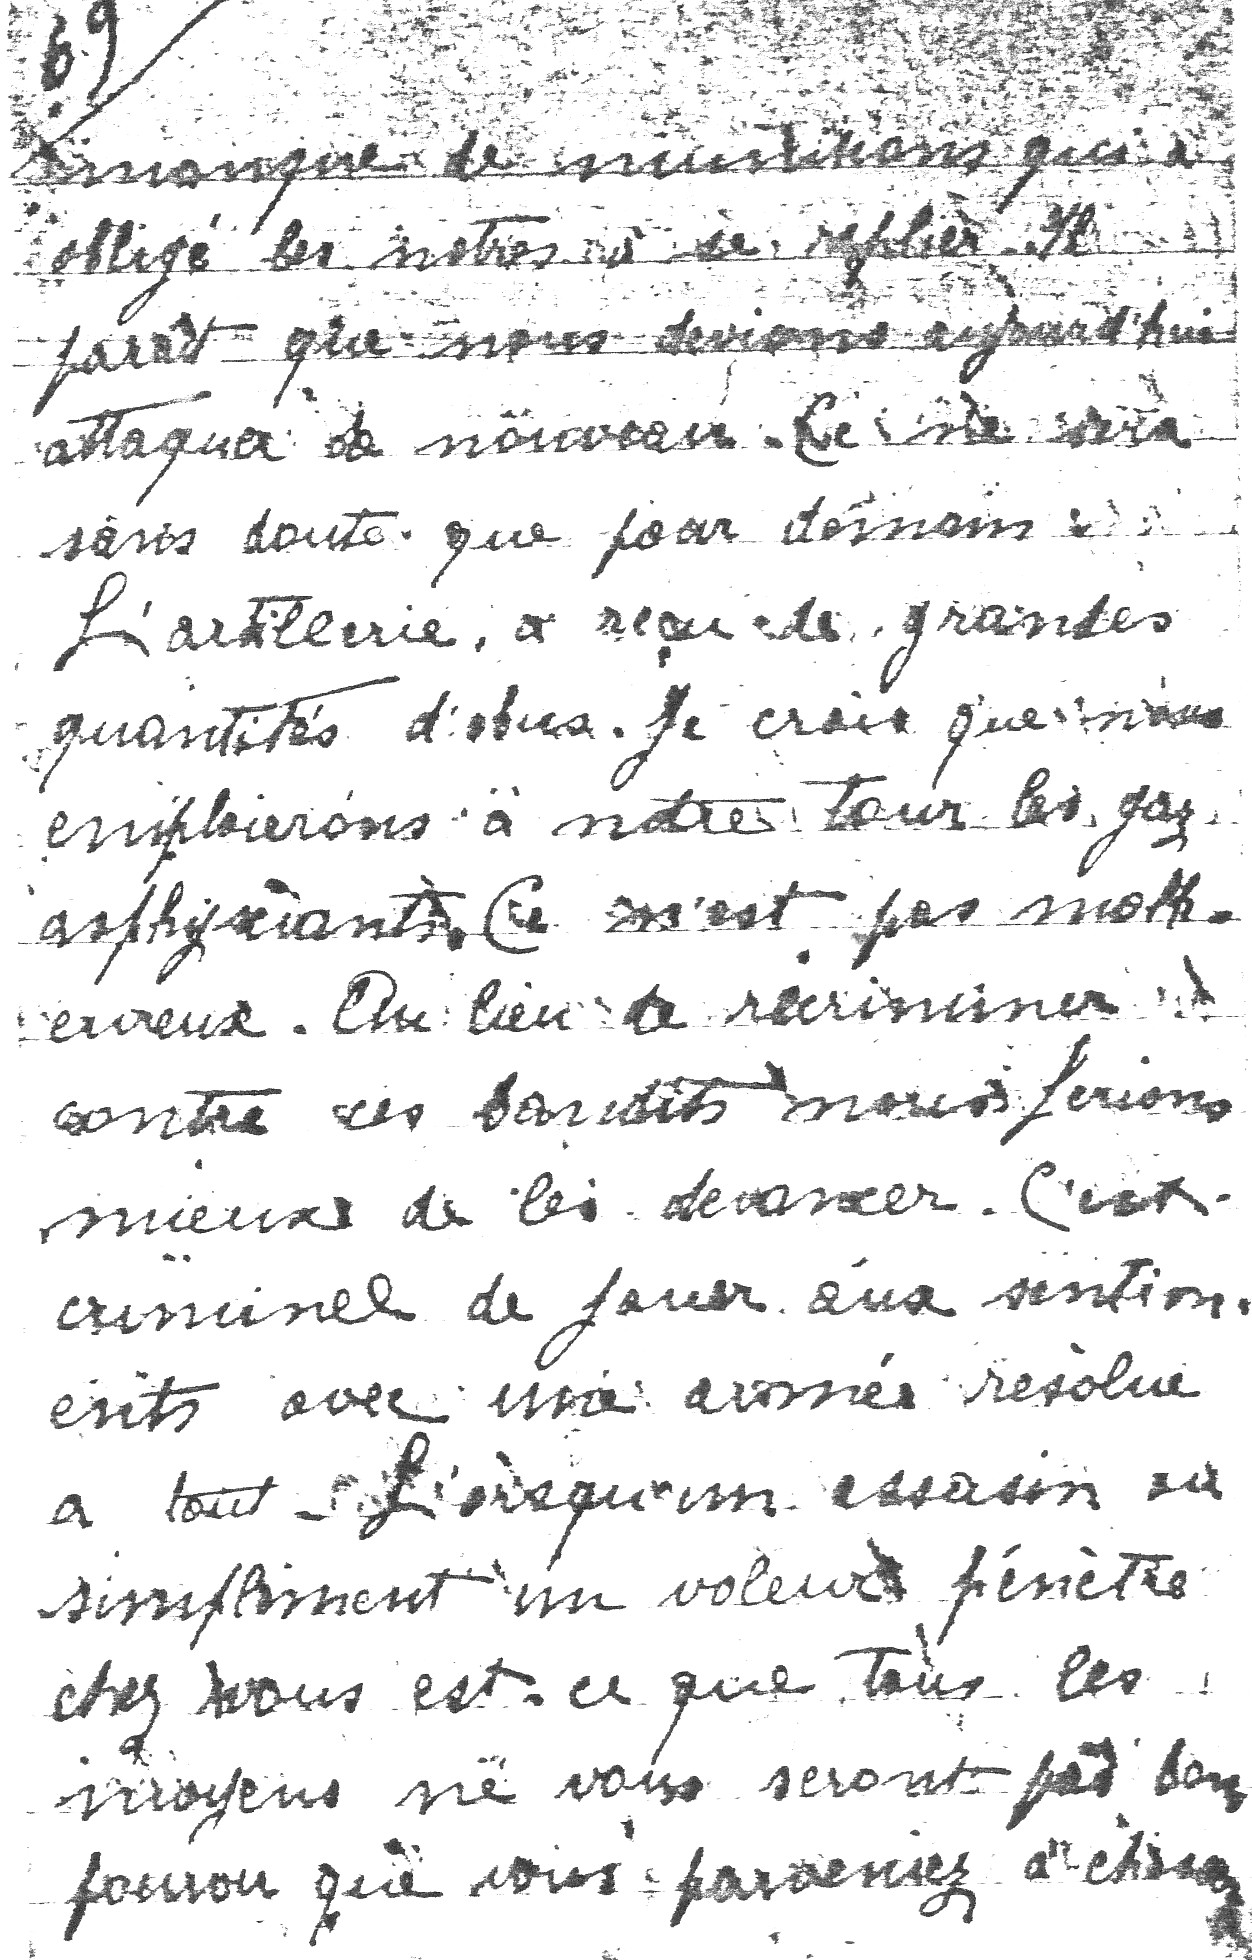 69
manque de munitions qui a
obligé les notres à se replier. Il
parait que nous devions aujourd'hui
attaquer de nouveau. Ce ne sera
sans doute que pour demain
L'artillerie a reçu de grandes
quantités d'obus. Je crois que nous
emploierons à notre tour les gaz
asphyxiants. Ce n'est pas malh-
eureux. Au lieu de récriminer
contre ces bandits nous ferions
mieux de les devancer. C'est
criminel de jouer aux sentim-
ents avec une armée résolue
a tout. Lorsqu'un assasin ou
simplement un voleur pénètre
chez vous est-ce que tous les
moyens ne vous seront pas bons
pourvu que vous parveniez à